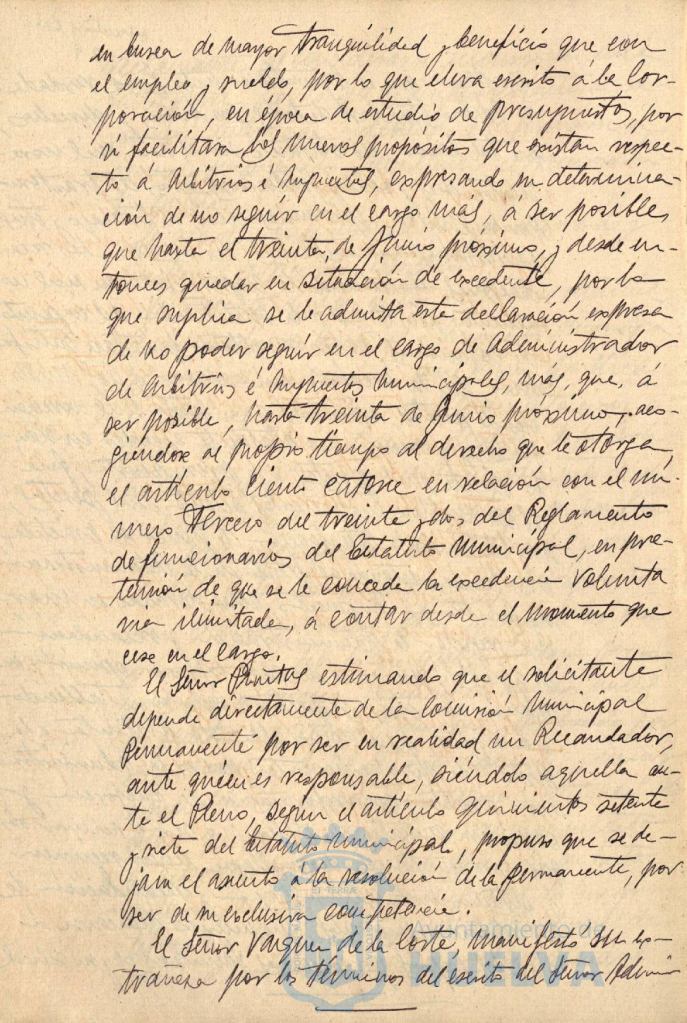 en busca de mayor tranquilidad y beneficio que con
el empleo y sueldo, por lo que eleva escrito á la Cor-
poración, en época de estudio de presupuestos, por
si facilitara los nuevos propósitos que existan respec-
to á Arbitrios é Impuestos, expresando su determina-
ción de no seguir en el cargo más, á ser posible,
que hasta el treinta de Junio próximo, y desde en-
tonces quedar en situación de excedente, por lo
que suplica se le admita esta declaración expresa
de no poder seguir en el cargo de Administrador
de Arbitrios é Impuestos Municipales, más, que, á
ser posible, hasta treinta de Junio próximo, aco-
giéndose al propio tiempo al derecho que le otorga
el artículo ciento catorce en relación con el nú-
mero tercero del treinta y dos del Reglamento
de funcionarios del Estatuto Municipal, en pre-
tensión de que se le conceda la excedencia volunta
ria ilimitada, á contar desde el momento que
cese en el cargo.
El Señor estimando que el solicitante
depende directamente de la Comisión Municipal
Permanente por ser en realidad un Recaudador,
ante quien es responsable, siéndolo aquella an-
te el Pleno, según el artículo quinientos setenta
y siete del Estatuto Municipal, propuso que se de-
jara el asunto á la resolución de la Permanente, por
ser de su exclusiva competencia.
El Señor Vazquez de la Corte, manifestó su ex-
trañeza por los términos del escrito del Señor Admin
Ayuntamiento de
HUELVA